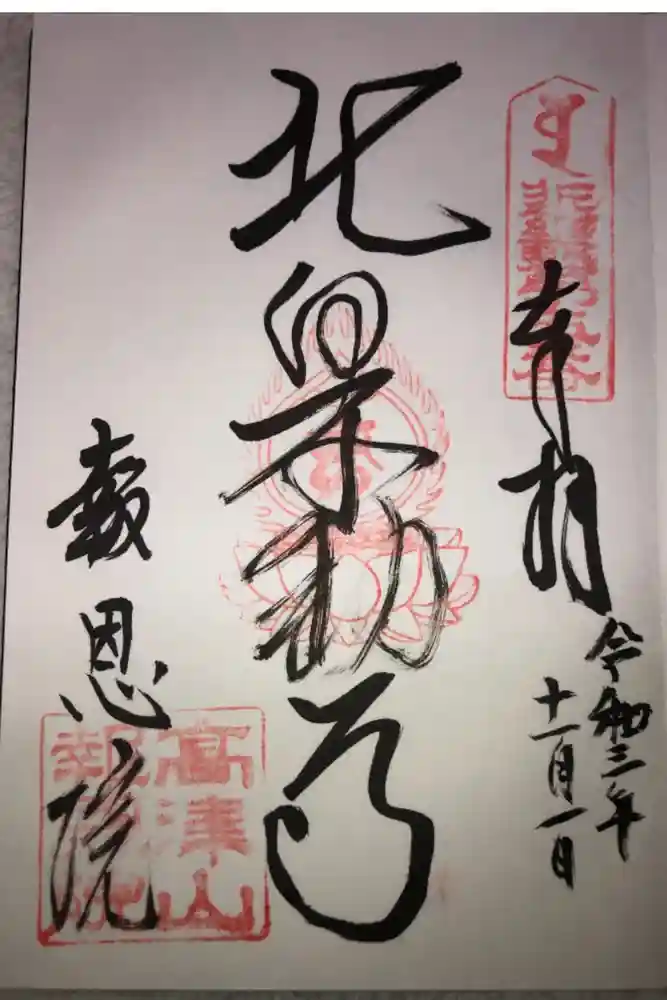 奉拝
令和三年
十一月一日
北向不動尊
報恩院
高津山
報恩院